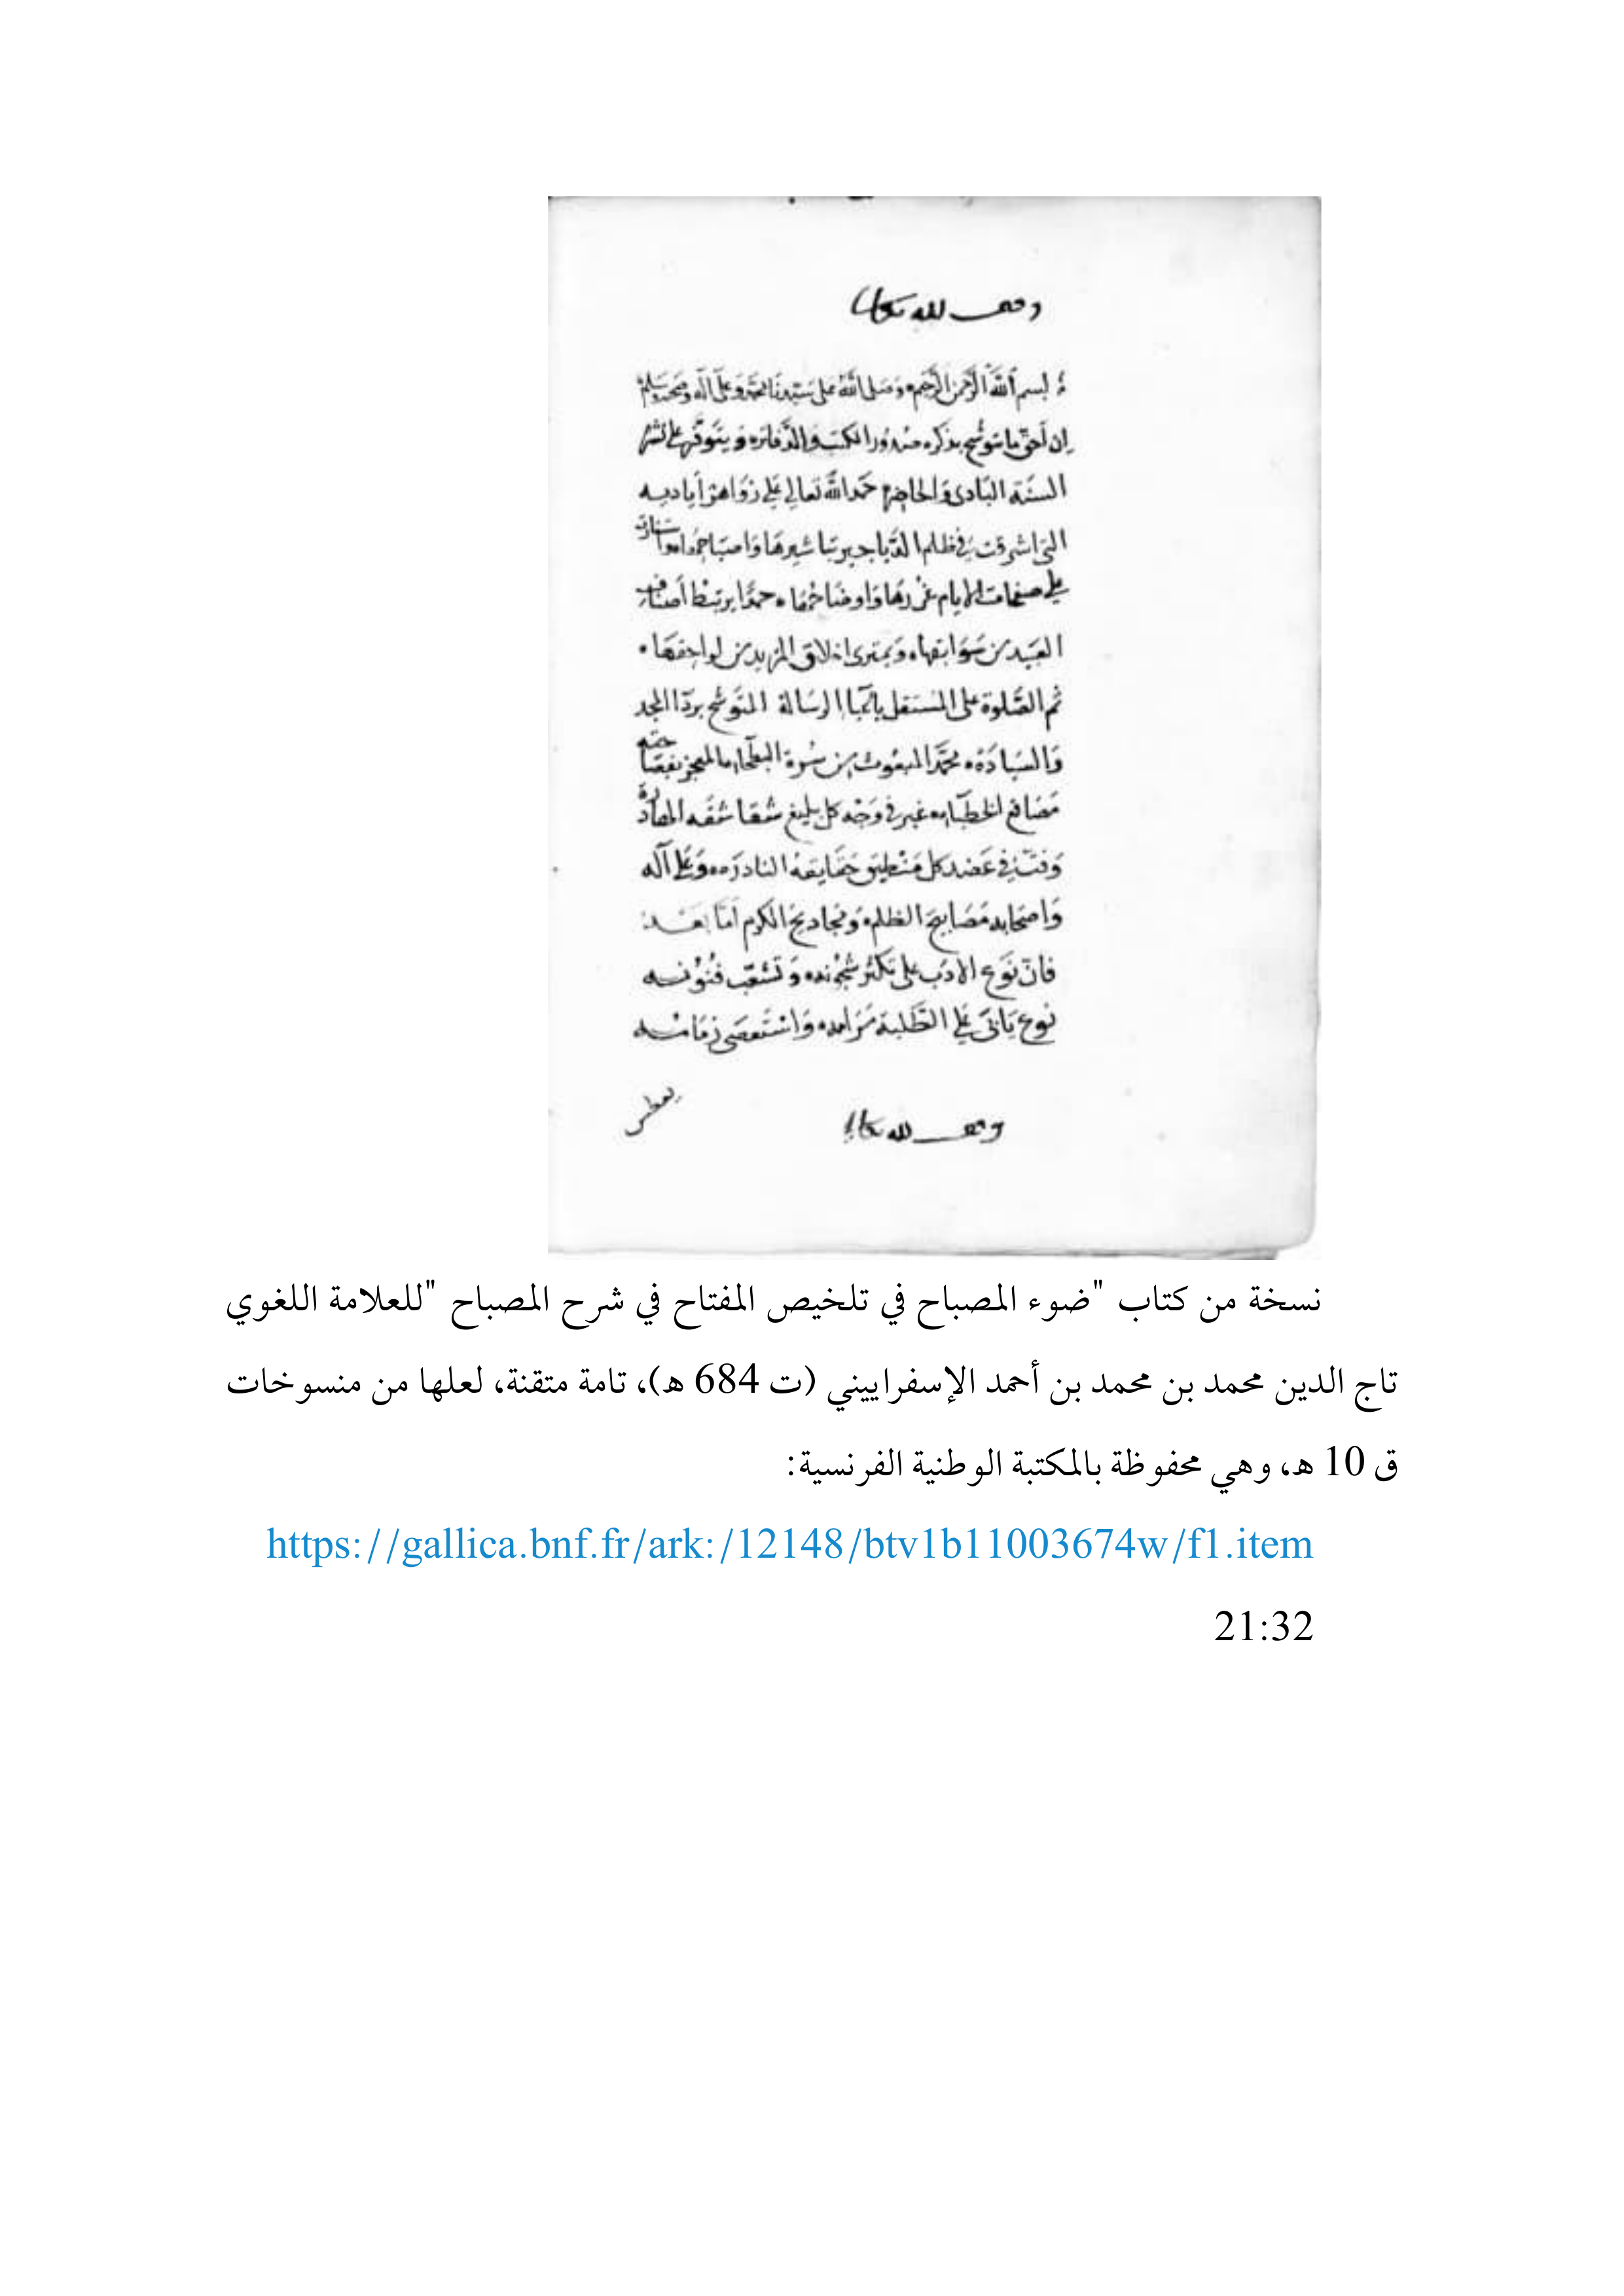 وقف لله تعالى
بسم الله الرحمن الرحيم وصلى الله على سيدنا محمد وعلى آله وصحبه وسلم
إن أحق ما توشح بذكره صدور الكتب والدفاتر ويتوفر على نشره
السنة البادى والحاضر حمد الله تعالى على زواهر أياديه
التى اشرقت فى ظلم الدياجير تباشيرها
على صفحات الايام غررها واوضاحها حمدا يرتبط
العبيد من سوابقها ويمترى اخلاف المزيد من لواحقها
ثم الصلوة على المستقل باعبآ الرسالة المتوشح بردآ المجد
والسيادة محمد المبعوث من سرة البطحآ المعجز بفصاحته
مصاقع الخطبآ غبر فى وجه كل بليغ شقاشقه الهادرة
وفت فى عضد كل منطيق حقايقه النادره وعلى آله
واصحابه مصابيح الظلم ومجاديح الكرم أما بعد
فان نوع الادب على تكثر شجونه وتشعب فنونه
نوع يأبى على الطلبة مرامه واستعصى زمامه
وقف لله تعالى
نسخة من كتاب "ضوء المصباح في تلخيص المفتاح في شرح المصباح "للعلامة اللغوي
تاج الدين محمد بن محمد بن أحمد الإسفراييني (ت 684 ه)، تامة متقنة، لعلها من منسوخات
ق 10 ه، وهي محفوظة بالمكتبة الوطنية الفرنسية:
https://gallica.bnf.fr/ark:/12148/btv1b11003674w/f1.item
21:32